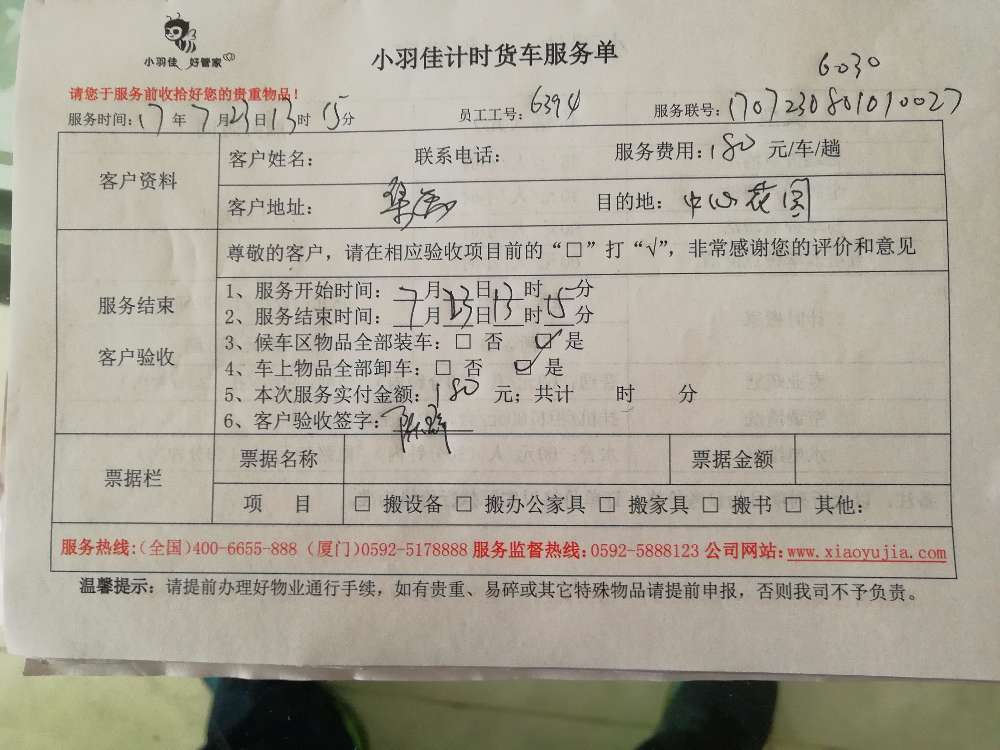 小羽佳 好管家
小羽佳计时货车服务单
6030
请您于服务前收拾好您的贵重物品！
服务时间：17 年 7 月 23 日 13 时 15 分 员工工号：6394 服务联号：170723080101 0027
客户资料
客户姓名： 联系电话： 服务费用：180 元/车/趟
客户地址： 目的地：中山花园
尊敬的客户，请在相应验收项目前的“□”打“√”，非常感谢您的评价和意见
服务结束
客户验收
1、服务开始时间：7月23日13时15分
2、服务结束时间：7月23日13时15分
3、候车区物品全部装车：□ 否 ☑ 是
4、车上物品全部卸车：□ 否 ☑ 是
5、本次服务实付金额：180 元；共计 时 分
6、客户验收签字：
票据栏
票据名称 票据金额
项 目 □ 搬设备 □ 搬办公家具 □ 搬家具 □ 搬书 □ 其他：
服务热线：（全国）400-6655-888（厦门）0592-5178888 服务监督热线：0592-5888123 公司网站：www.xiaoyujia.com
温馨提示：请提前办理好物业通行手续，如有贵重、易碎或其它特殊物品请提前申报，否则我司不予负责。